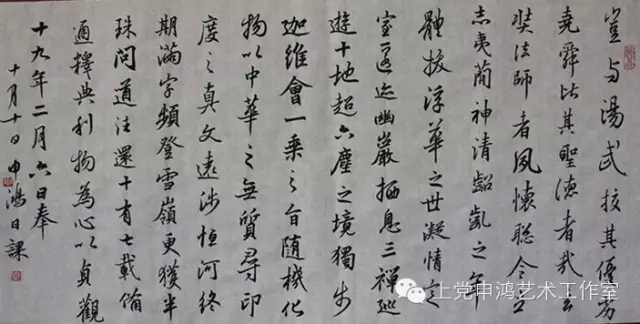 豈与湯武校其優劣
堯舜比其聖德者哉玄
奘法師者夙懷聰令立
志夷蕳神清齠齔之年
體拔浮華之世凝情定
室匿迹幽巖栖息三禪巡
遊十地超六塵之境獨步
迦維會一乘之旨隨機化
物以中華之無質尋印
度之真文遠涉恒河終
期滿字頻登雪嶺更獲半
珠問道法還十有七載備
通釋典利物為心以貞觀
十九年二月六日奉
十月十日申鴻日課
上党申鸿艺术工作室